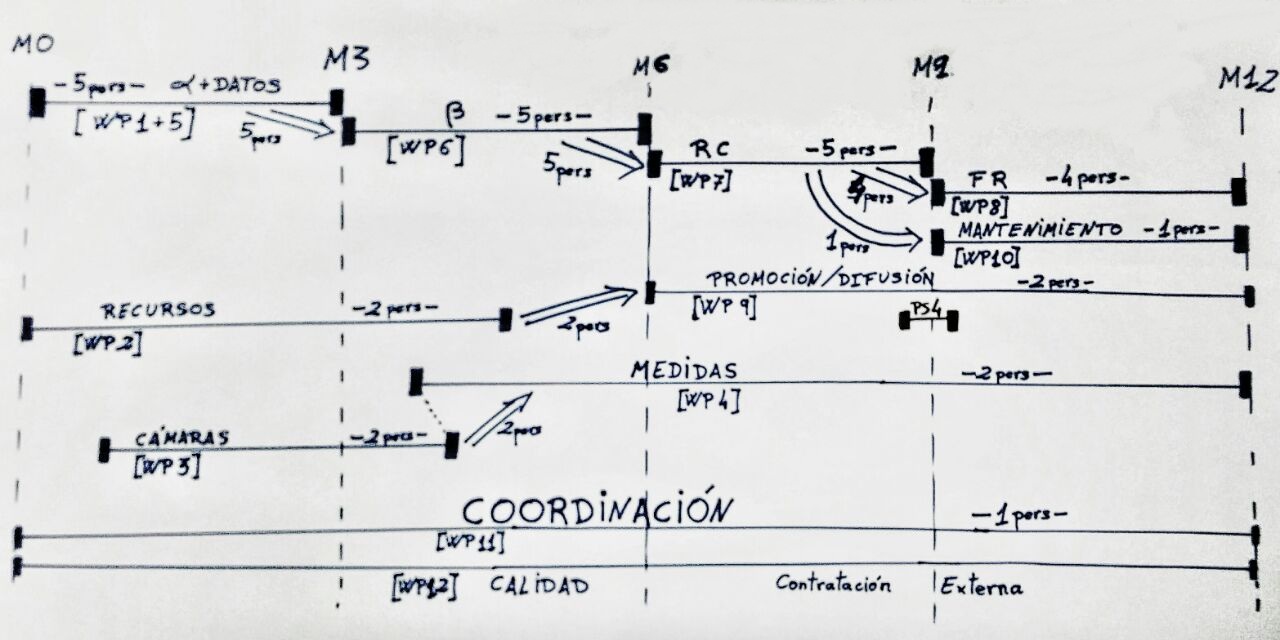 M0 M3 M6 M9 M12
-5pers- α+DATOS
[WP1+5]
5pers
β -5pers-
[WP6]
5pers
RC -5pers-
[WP7]
4pers
1pers
FR -4pers-
[WP8]
MANTENIMIENTO -1pers-
[WP10]
PROMOCIÓN/DIFUSIÓN -2pers-
[WP9]
PS4
RECURSOS -2pers-
[WP2]
2pers
MEDIDAS -2pers-
[WP4]
CÁMARAS -2pers-
[WP3]
2pers
COORDINACIÓN -1pers-
[WP11]
[WP12] CALIDAD Contratación Externa